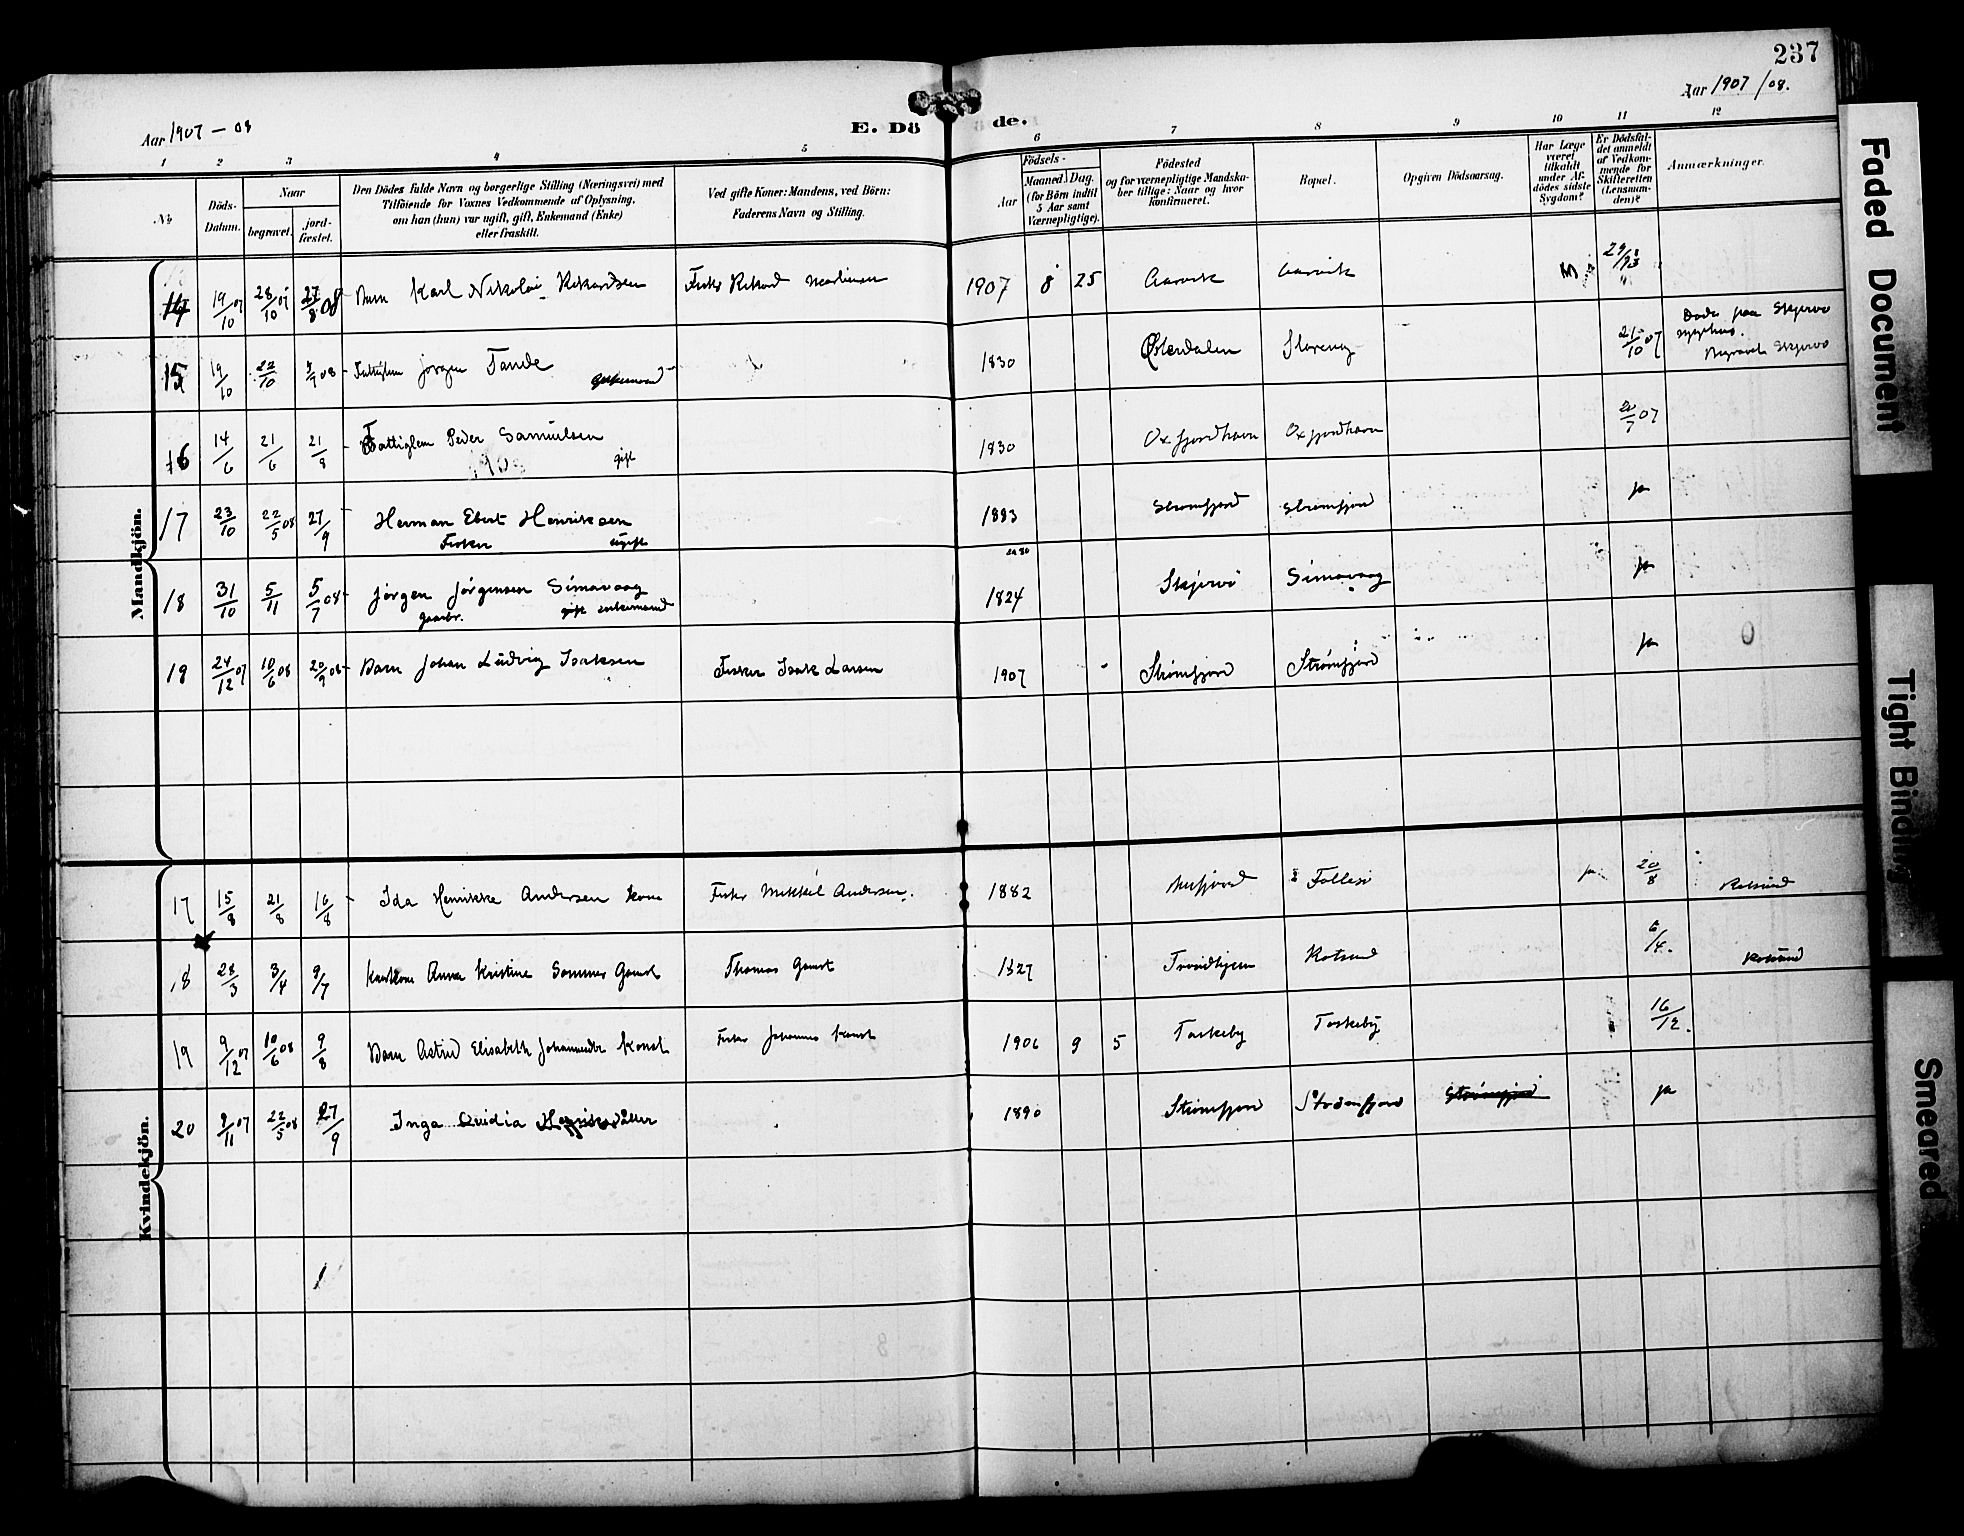 237
Aar 1907 - 08
E. Döde.
Aar 1907/08.
1 2 3 4 5 6 7 8 9 10 11 12
No
Döds-Datum.
Naar
begravet.
jord-fæstet.
Den Dödes fulde Navn og borgerlige Stilling (Næringsvei) med
Tilföiende for Voxnes Vedkommende af Oplysning,
om han (hun) var ugift, gift, Enkemand (Enke)
eller fraskilt.
Ved gifte Koner: Mandens, ved Börn:
Faderens Navn og Stilling.
Födsels-
Aar
Maaned. Dag.
(for Börn indtil
5 Aar samt
Værnepligtige).
Födested
og for værnepligtige Mandska-
ber tillige: Naar og hvor
konfirmeret.
Bopæl.
Opgiven Dödsaarsag.
Har Læge
været
tilkaldt
under Af-
dödes sidste
Sygdom?
Er Dödsfal-
det anmeldt
af Vedkom-
mende for
Skifteretten
(Lensman-
den)?
Anmærkninger.
Mandkjön.
14 19/10 07 28/10 07 27/8 08 Barn Karl Nikolai Rikardsen Fisker Rikard Martinsen 1907 8 25 Aarvik Aarvik
15 19/10 22/10 08 Fattiglem Jørgen Tande 1830 Østerdalen 21/10 07 Døde paa Skjervø
sygehus.
Begravet Skjervø
Enkemand
16 14/6 21/6 21/8 Fattiglem Peder Samuelsen 1830 Oxfjordhavn Oxfjordhavn 20/7 07
gift
17 23/10 22/5 08 27/9 Herman Ebert Henriksen 1883 Strømfjord Strømfjord ja
Fisker ugift
18 31/10 5/11 5/7 08 Jørgen Jørgensen Simavaag 1824 Skjervö Simavaag ja
gaardbr. gift enkemand
19 24/12 07 10/6 08 20/9 08 Barn Johan Ludvig Isaksen Fisker Isak Larsen 1907 Strømfjord Strømfjord ja
Kvindekjön.
17 15/8 21/8 16/8 Ida Henrikke Andersen kone Fisker Mikkel Andersen. 1882 Follesø ja 20/8 Rotsund
18 28/3 3/4 9/7 Anna Kristine Sommer Gamst Thomas Gamst 1827 Trondhjem Rotsund 6/4. Rotsund
19 9/12 07 10/6 08 9/8 Barn Astrid Elisabeth Johannesdtr Konst Fisker Johannes Konst 1906 9 5 Taskeby Taskeby 16/12.
20 9/11 07 22/5 08 27/9 Inga Ovidia Henriksdatter 1890 Strømfjord Strømfjord Strømfjord ja
Faded Document
Tight Binding
Smeared